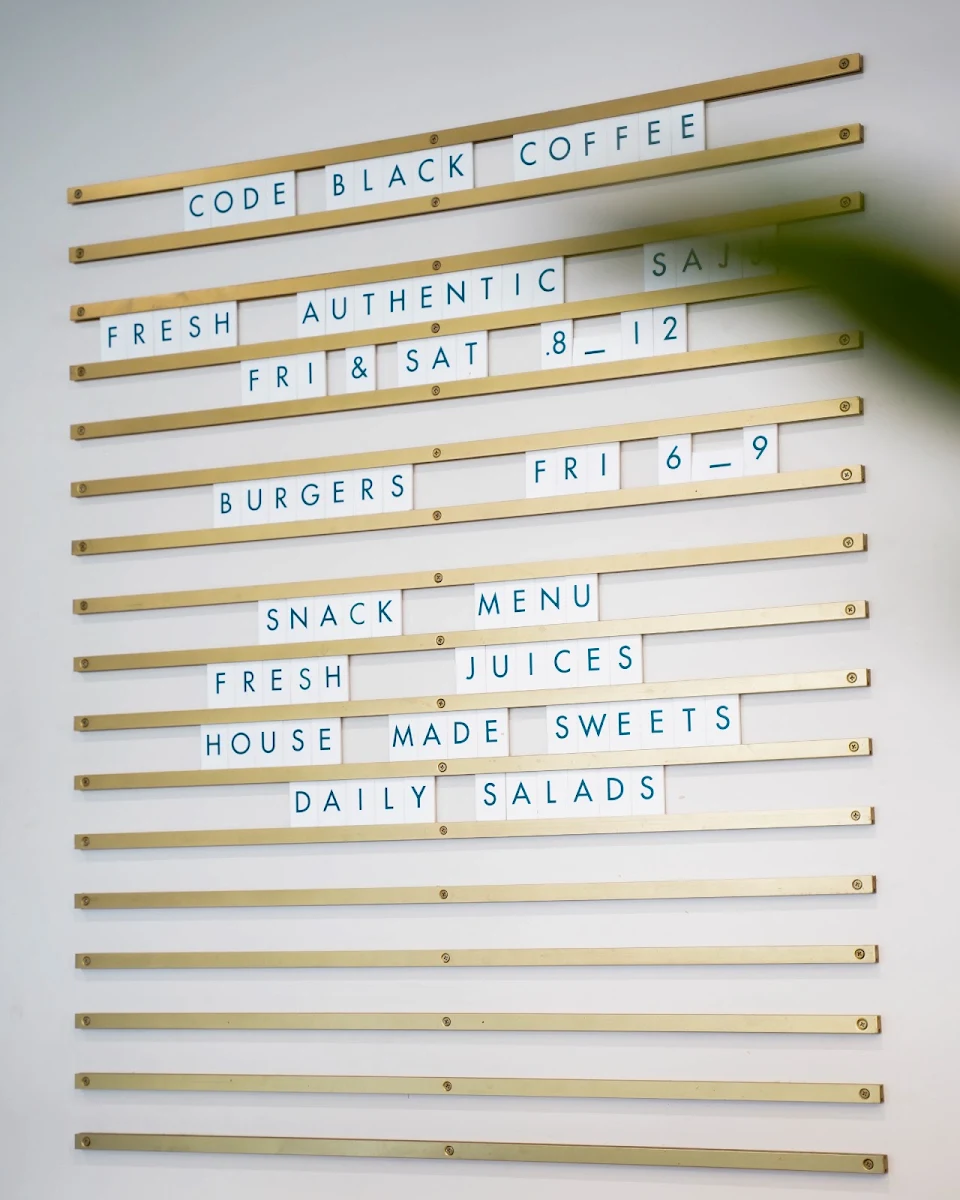 CODE BLACK COFFEE
FRESH AUTHENTIC
FRI & SAT .8_12
BURGERS FRI 6_9
SNACK MENU
FRESH JUICES
HOUSE MADE SWEETS
DAILY SALADS